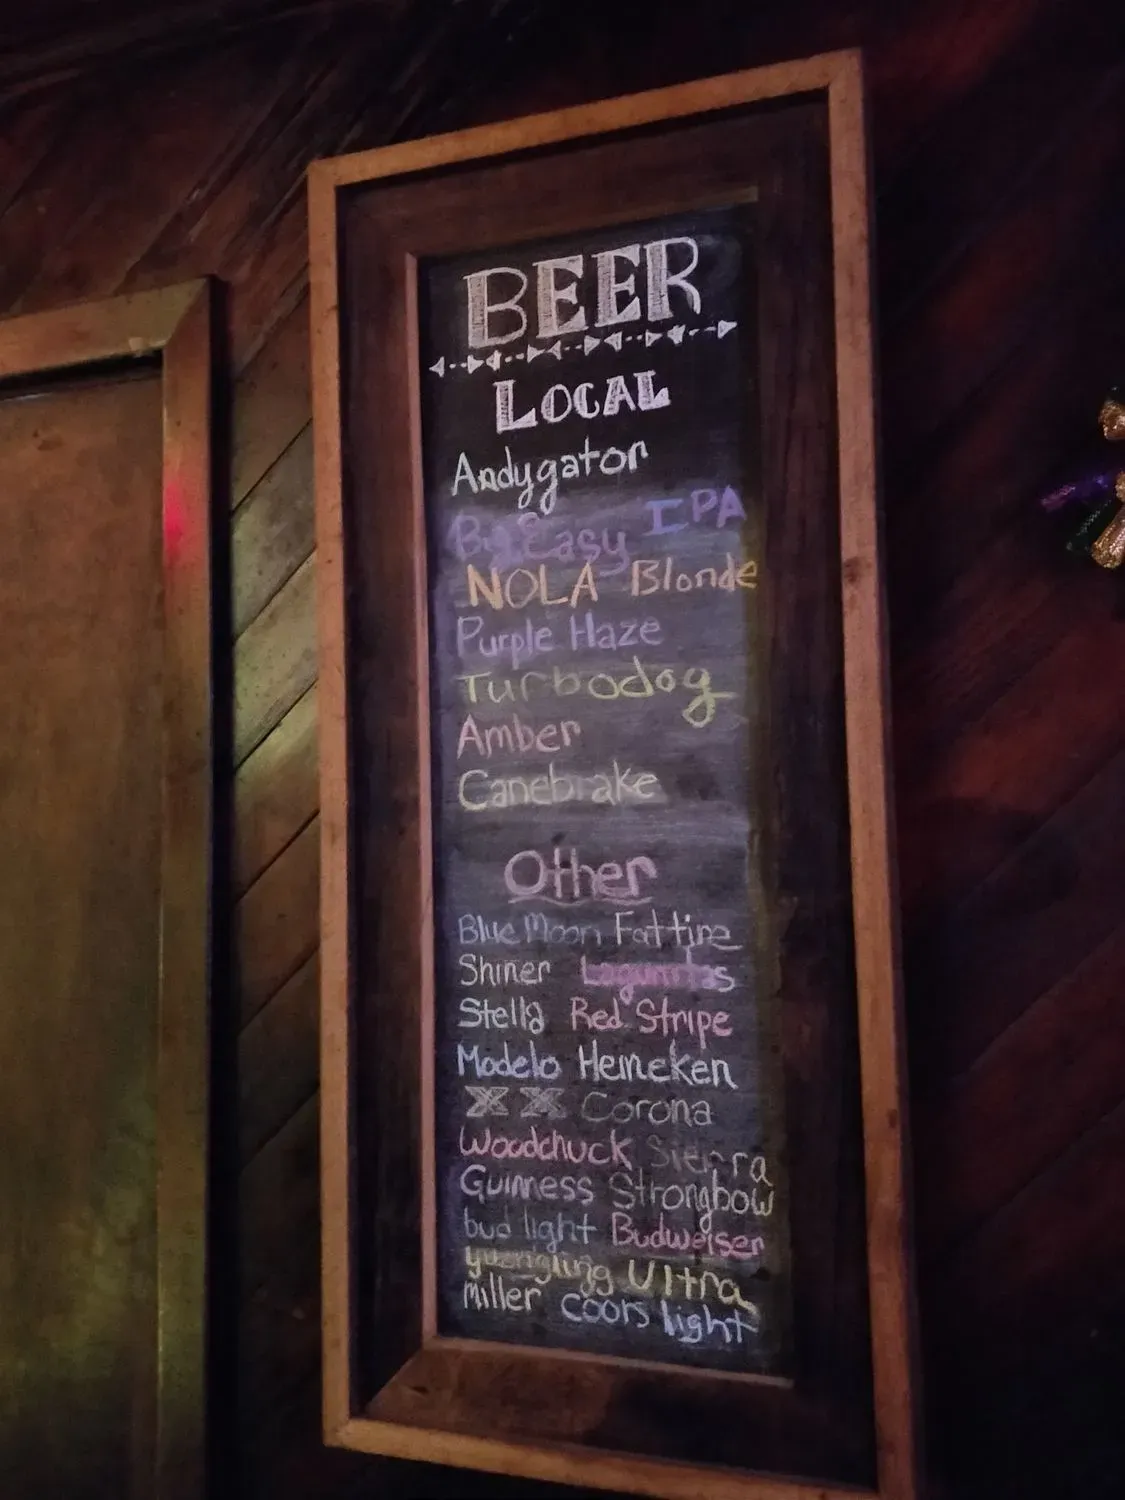 BEER
LOCAL
Andygator
Big Easy IPA
NOLA Blonde
Purple Haze
Turbodog
Amber
Canebrake
Other
Blue Moon Fattire
Shiner Lagunitas
Stella Red Stripe
Modelo Heineken
XX Corona
Woodchuck Sierra
Guinness Strongbow
bud light Budweiser
yuengling Ultra
miller coors light